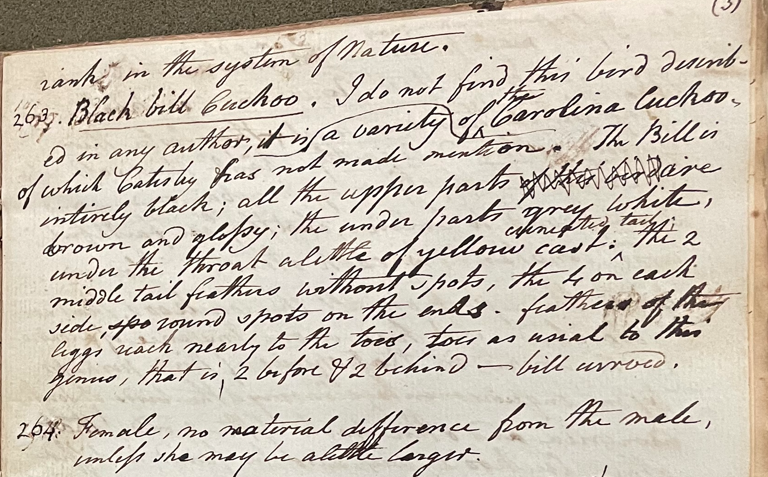 (5)
rank in the system of Nature.
263. Black bill Cuckoo. I do not find this bird describ-
ed in any author, it is a variety of the Carolina Cuckoo-
of which Catesby has not made mention. The Bill is
intirely black; all the upper parts are
brown and glossy; the under parts grey white,
under the throat a little of yellow cast. cuneated tail; the 2
middle tail feathers without spots, the 4 on each
side, round spots on the ends. feathers of the
leggs reach nearly to the toes, toes as usial to this
genus, that is, 2 before & 2 behind — bill curved.
264. Female, no material difference from the male,
unless she may be a little larger.